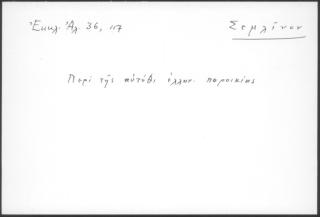 Ἐκκλ. Ἀλ. 36, 117
Σεμλῖνον
Περὶ τῆς αὐτόθι ἑλλην. παροικίας